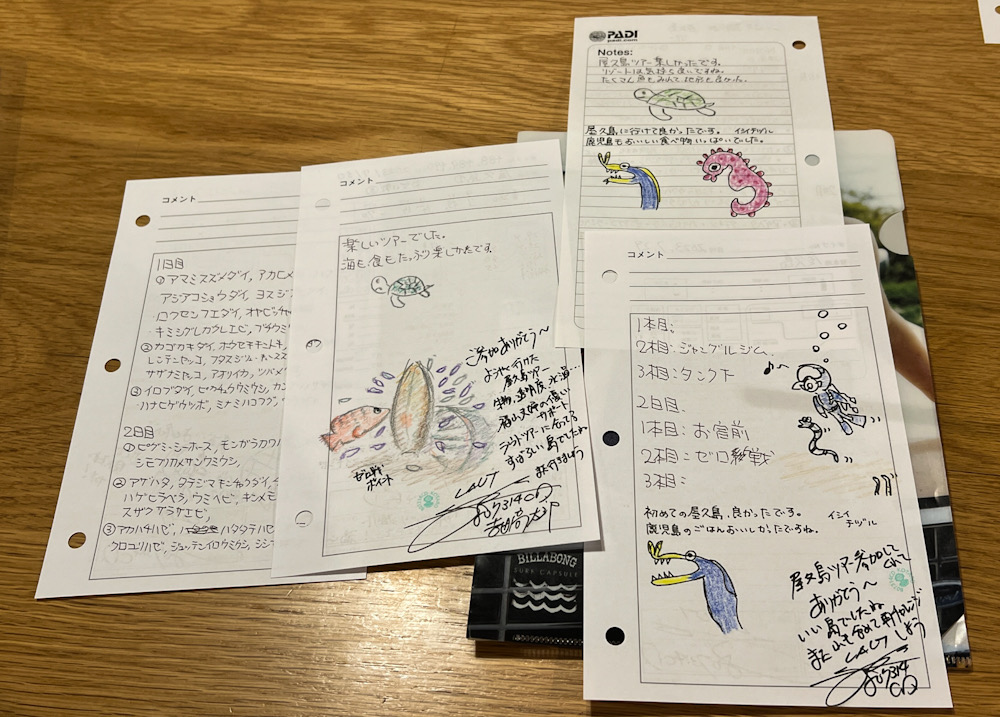 コメント
1日目
① アマミスズメダイ, アカヒメ
アジアコショウダイ, ヨスジ
ロクセンフエダイ, オヤビッチャ
キミシグレカクレエビ, フチウミ
② カゴカキダイ, ホウセキキントキ
サザナミヤッコ, アオリイカ, ツバメ
③ イロブダイ, セカイチュウミウシ, カン
ハナヒゲウツボ, ミナミハコフグ,
2日目
① ピグミーシーホース, モンガラカワハ
シモフリカメサンウミウシ,
② アザハタ, タテジマキンチャクダイ,
ハゲヒラベラ, ウミヘビ, キンメモ
スザクサラサエビ,
③ アカハチハゼ, ハタタテハゼ
クロユリハゼ,
コメント
楽しいツアーでした。
海も食もたっぷり楽しかたです。
ご参加ありがとう〜
ようやく行けた
屋久島ツアー
生物、透明度、水温…
サポート
すばらしい島でしたね
また行きましょう
ゼロ戦
ポイント
PADI
padi.com
Notes:
屋久島ツアー楽しかったです。
リゾートは気持ち良いですね。
たくさん魚もみれて地形も良かった。
屋久島に行けて良かったです。 イシイテヅル
鹿児島もおいしい食べ物いっぱいでした。
コメント
1本目:
2本目: ジャングルジム
3本目: タンク下
2日目
1本目: お宮前
2本目: ゼロ戦
3本目:
初めての屋久島、良かったです。 イシイ
鹿児島のごはんおいしかったですね。 テヅル
屋久島ツアー参加して
ありがとう〜
いい島でしたね
また山も含めて再チャレンジ
しよう
BILLABONG
SURF CAPSULE